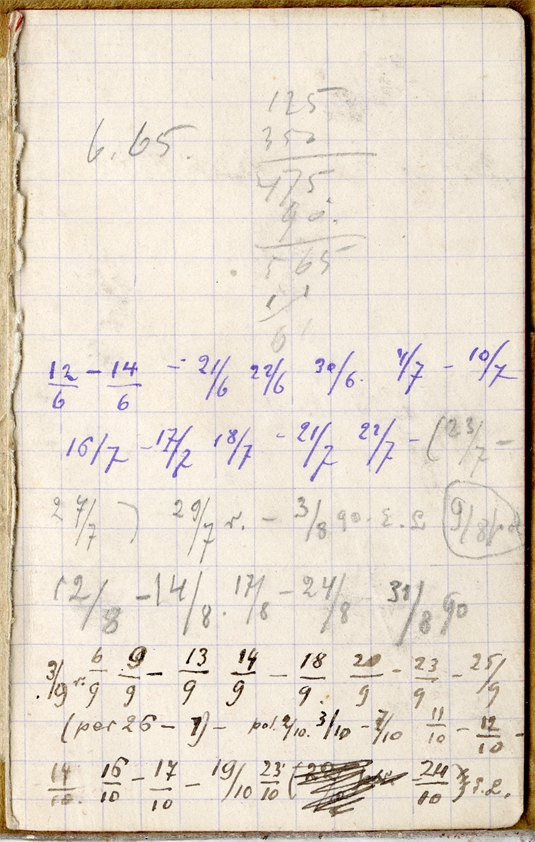 125
6.65. 350
475
90.
565
12/6 - 14/6 - 21/6 22/6 30/6. 4/7 - 10/7
16/7 - 17/7 18/7 - 21/7 22/7 - (23/7 -
27/7) 29/7 r. - 3/8 90. 9/8
12/8 - 14/8. 17/8 - 24/8 - 31/8 90
3/9 r. 6/9 9/9 - 13/9 14/9 - 18/9. 20/9 - 23/9 - 25/9
(per 26 - 1) - 3/10 - 7/10 11/10 - 12/10 -
14/10. 16/10 - 17/10 - 19/10 23/10 ( 24/10)